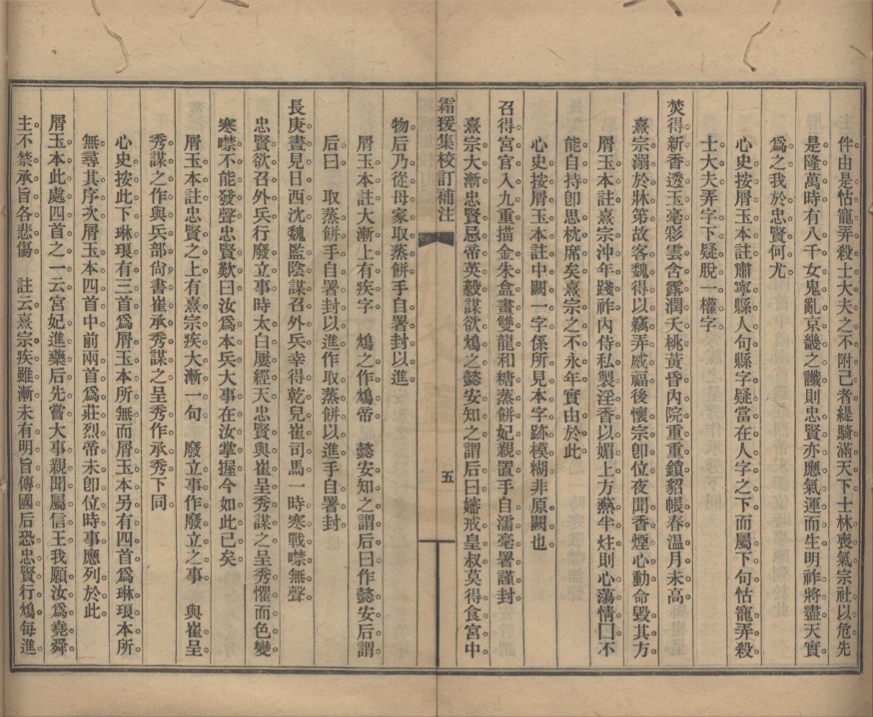 伴由是怙寵弄殺士大夫之不附己者緹騎滿天下士林喪氣宗社以危先
是隆萬時有八千女鬼亂京畿之讖則忠賢亦應氣運而生明祚將盡天實
爲之我於忠賢何尤
心史按屑玉本註肅寧縣人句縣字疑當在人字之下而屬下句怙寵弄殺
士大夫弄字下疑脫一權字
焚得新香透玉毫彩雲含露潤夭桃黃昏內院重重鎖貂帳春温月未高
熹宗溺於牀笫故客魏得以竊弄威福後懷宗卽位夜聞香煙心動命毀其方
屑玉本註熹宗沖年踐祚內侍私製淫香以媚上方爇半炷則心蕩情囗不
能自持卽思枕席矣熹宗之不永年實由於此
心史按屑玉本註中闕一字係所見本字跡模糊非原闕也
召得宮官入九重描金朱盒畫雙龍和糖蒸餅妃親置手自濡毫署謹封
熹宗大漸忠賢忌帝英毅謀欲鴆之懿安知之謂后曰藩戒皇叔莫得食宮中
霜猨集校訂補注
五
物后乃從母家取蒸餅手自署封以進
屑玉本註大漸上有疾字 鴆之作鴆帝 懿安知之謂后曰作懿安后謂
后曰 取蒸餅手自署封以進作取蒸餅以進手自署封
長庚晝見日西沈魏監陰謀召外兵幸得乾兒崔司馬一時寒戰噤無聲
忠賢欲召外兵行廢立事時太白屢經天忠賢與崔呈秀謀之呈秀懼而色變
寒噤不能發聲忠賢歎曰汝爲本兵大事在汝掌握今如此已矣
屑玉本註忠賢之上有熹宗疾大漸一句 廢立事作廢立之事 與崔呈
秀謀之作與兵部尙書崔承秀謀之呈秀作承秀下同
心史按此下琳琅有三首爲屑玉本所無而屑玉本另有四首爲琳琅本所
無尋其序次屑玉本四首中前兩首爲莊烈帝未卽位時事應列於此
屑玉本此處四首之一云宮妃進藥后先嘗大事親聞屬信王我願汝爲堯舜
主不禁承旨各悲傷 註云熹宗疾雖漸未有明旨傳國后恐忠賢行鴆每進